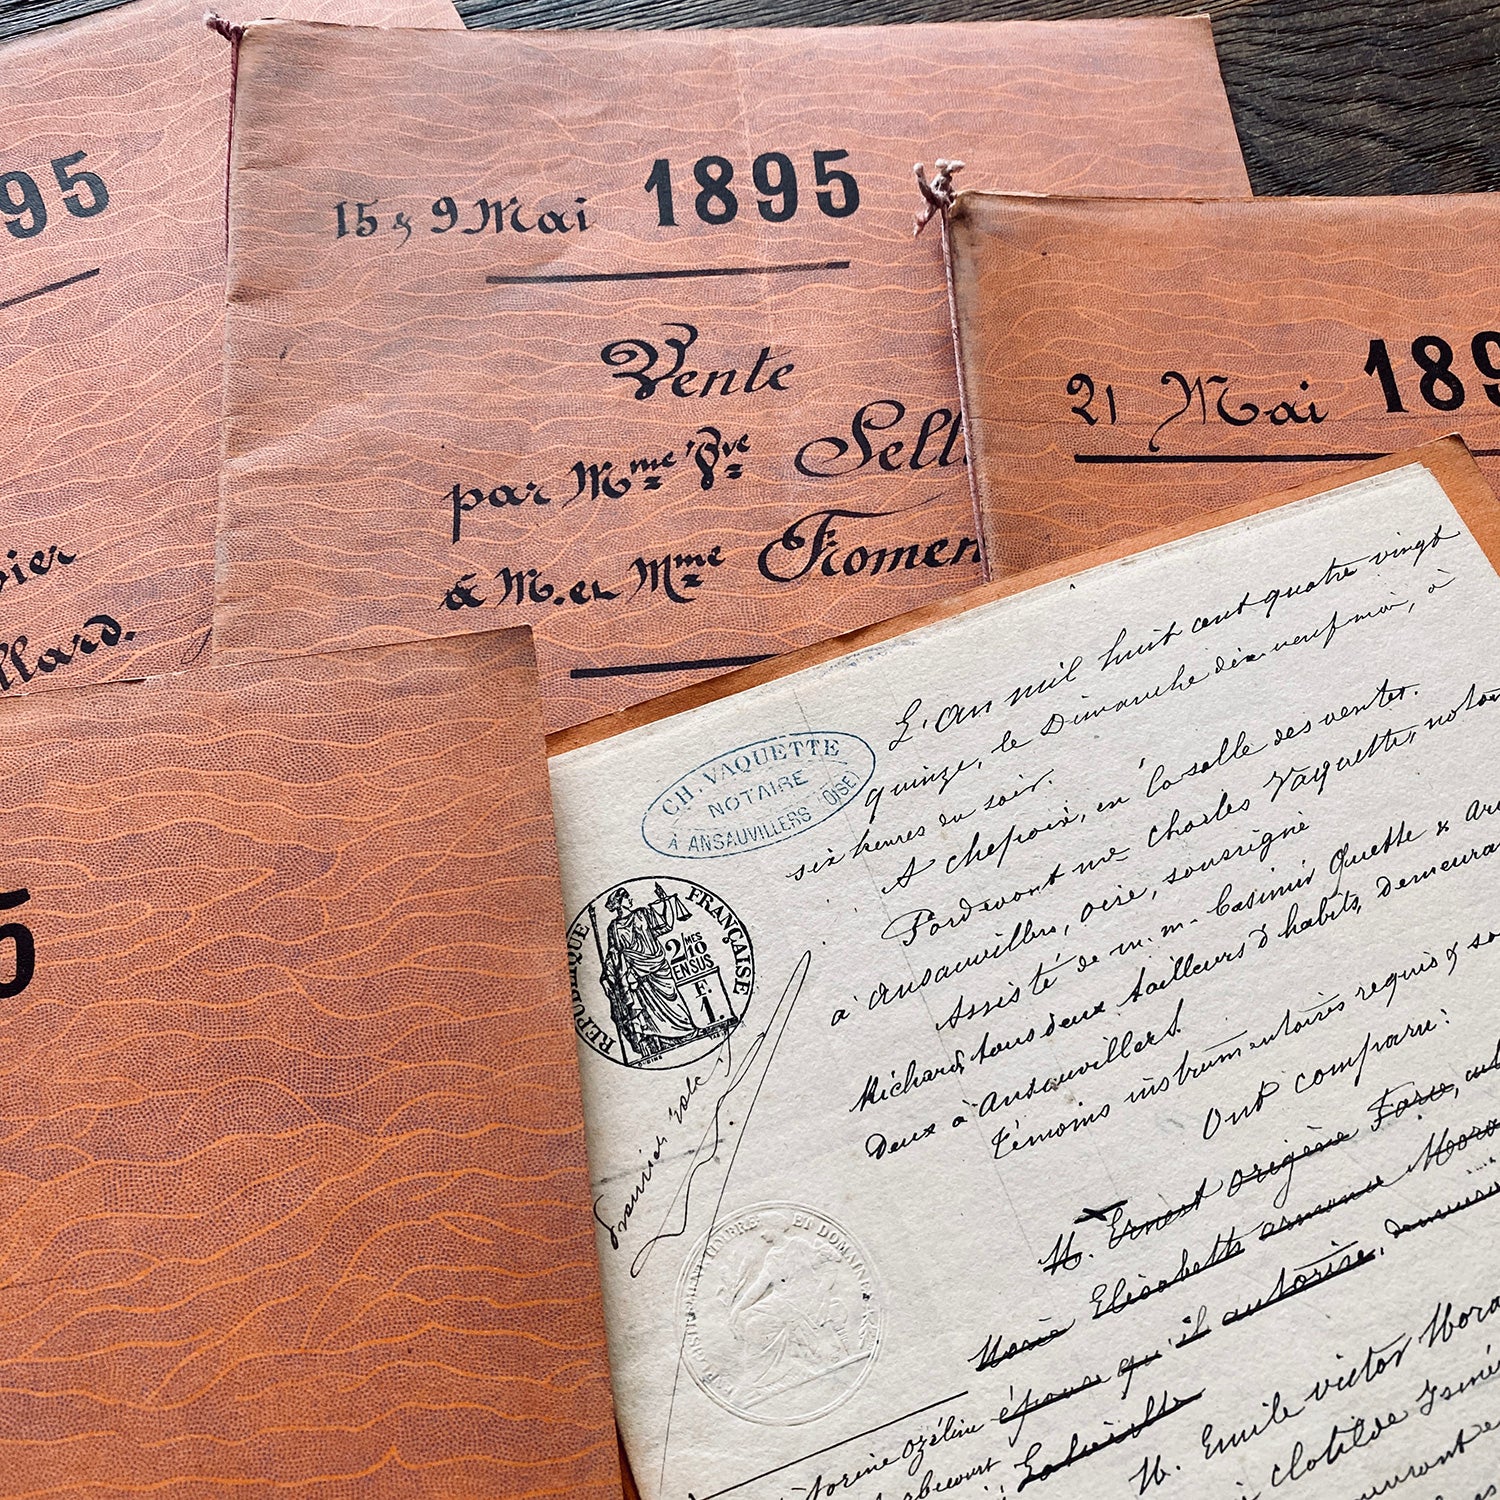 95
ier
llard.
15 & 9 Mai 1895
Vente
par Mme Vve Sell
à M. et Mme Fromen
21 Mai 189
5
CH. VAQUETTE
NOTAIRE
À ANSAUVILLERS (OISE)
RÉPUBLIQUE FRANÇAISE
2/10
MES
EN SUS
F.
1.
TIMBRE ET DOMAINE
L'an mil huit cent quatre vingt
quinze, le Dimanche dix neuf mai, à
six heures du soir.
A Chepoix, en la salle des ventes.
Pardevant me Charles Vaquette, notai
à Ansauvillers, oise, soussigné
Assisté de m.m. Casimir Quette &
Richard, tous deux tailleurs d'habits, demeura
Deux à Ansauvillers.
Témoins instrumentaires requis & so
Ont comparu:
M. Ernest origène Fare,
Marie Elisabeth armance Mora
épouse qu'il autorise,
torine ozéline
M. Emile victor Mora
clotilde